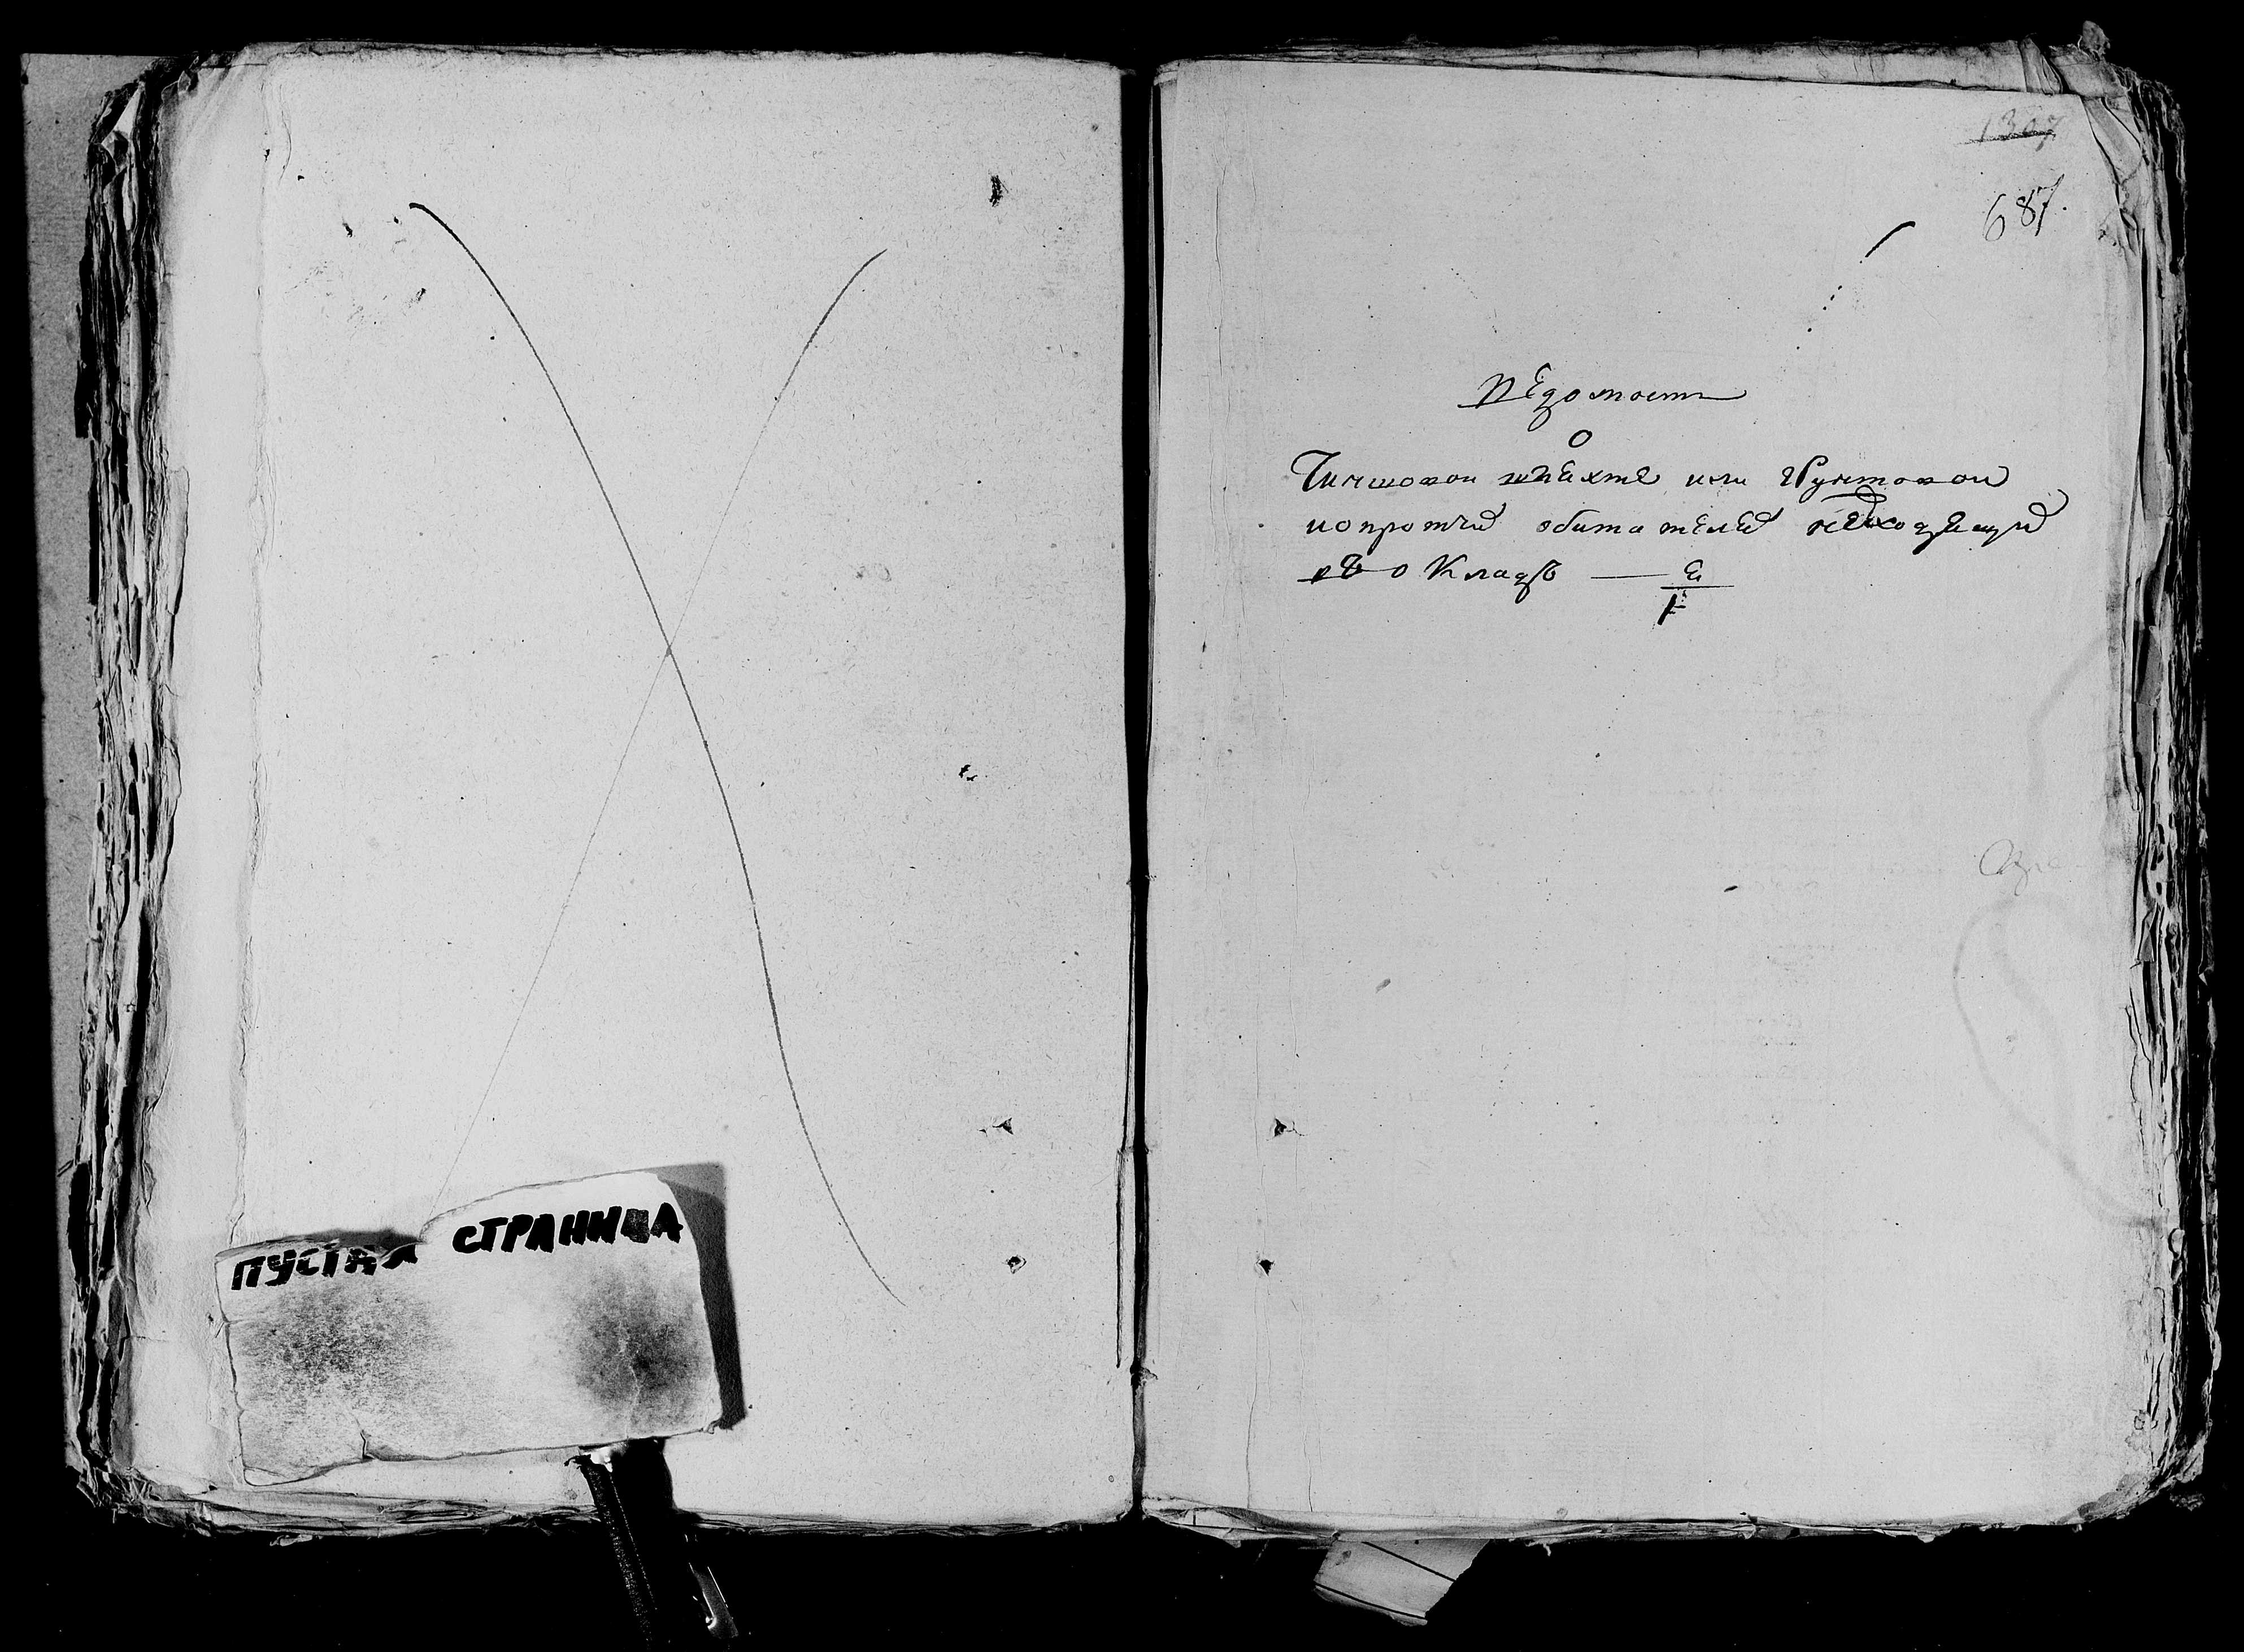 ПУСТАЯ СТРАНИЦА
1307
687.
Ведомост
о
Чиншовои шляхте или грунтовои
и о протчих обитателех не входящих
в о Кладъ —